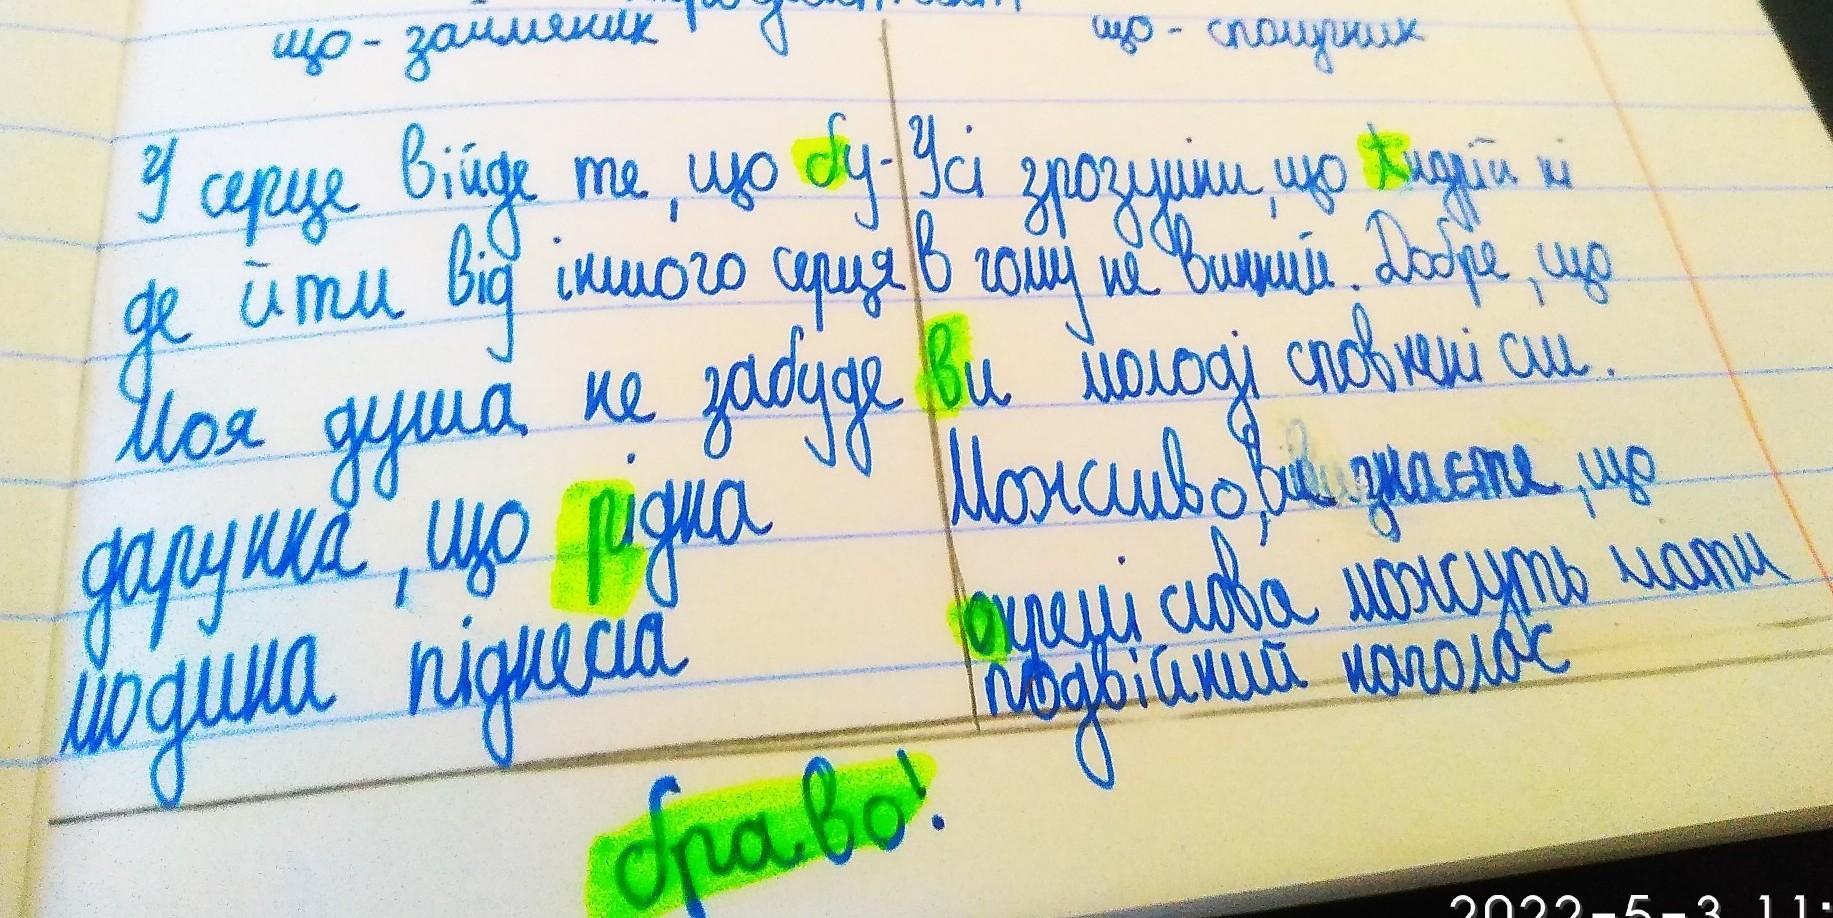 що - займеник
У серце війде те, що бу-
де йти від іншого серця
Моя душа не забуде
дарунка, що рідна
людина піднесла
що - сполучник
Усі зрозуміли, що Андрій ні
в чому не винний. Добре, що
ви молоді сповнені сил.
Можливо, ви знаєте, що
окремі слова можуть мати
подвійний наголос
браво!
2022-5-3 11: